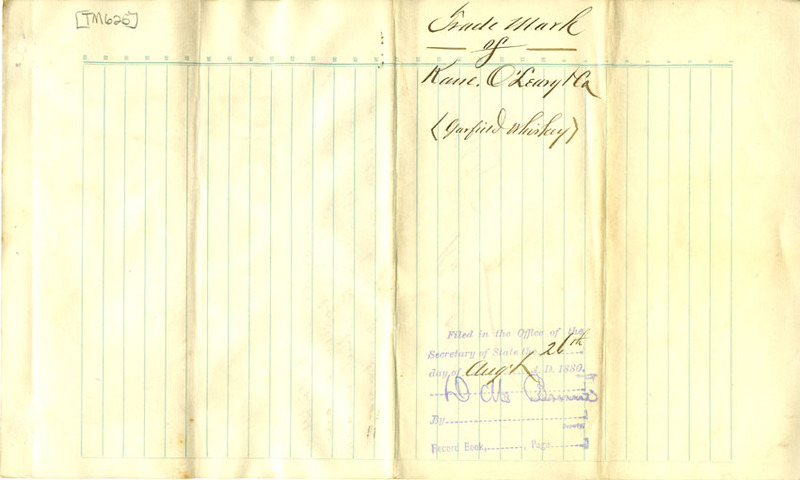 [TM625]
Trade Mark
of
Kane, O'Leary & Co
(Garfield Whiskey)
Filed in the Office of the
Secretary of State the 26th
day of Aug't A.D. 1880.
By
Deputy
Record Book, , Page